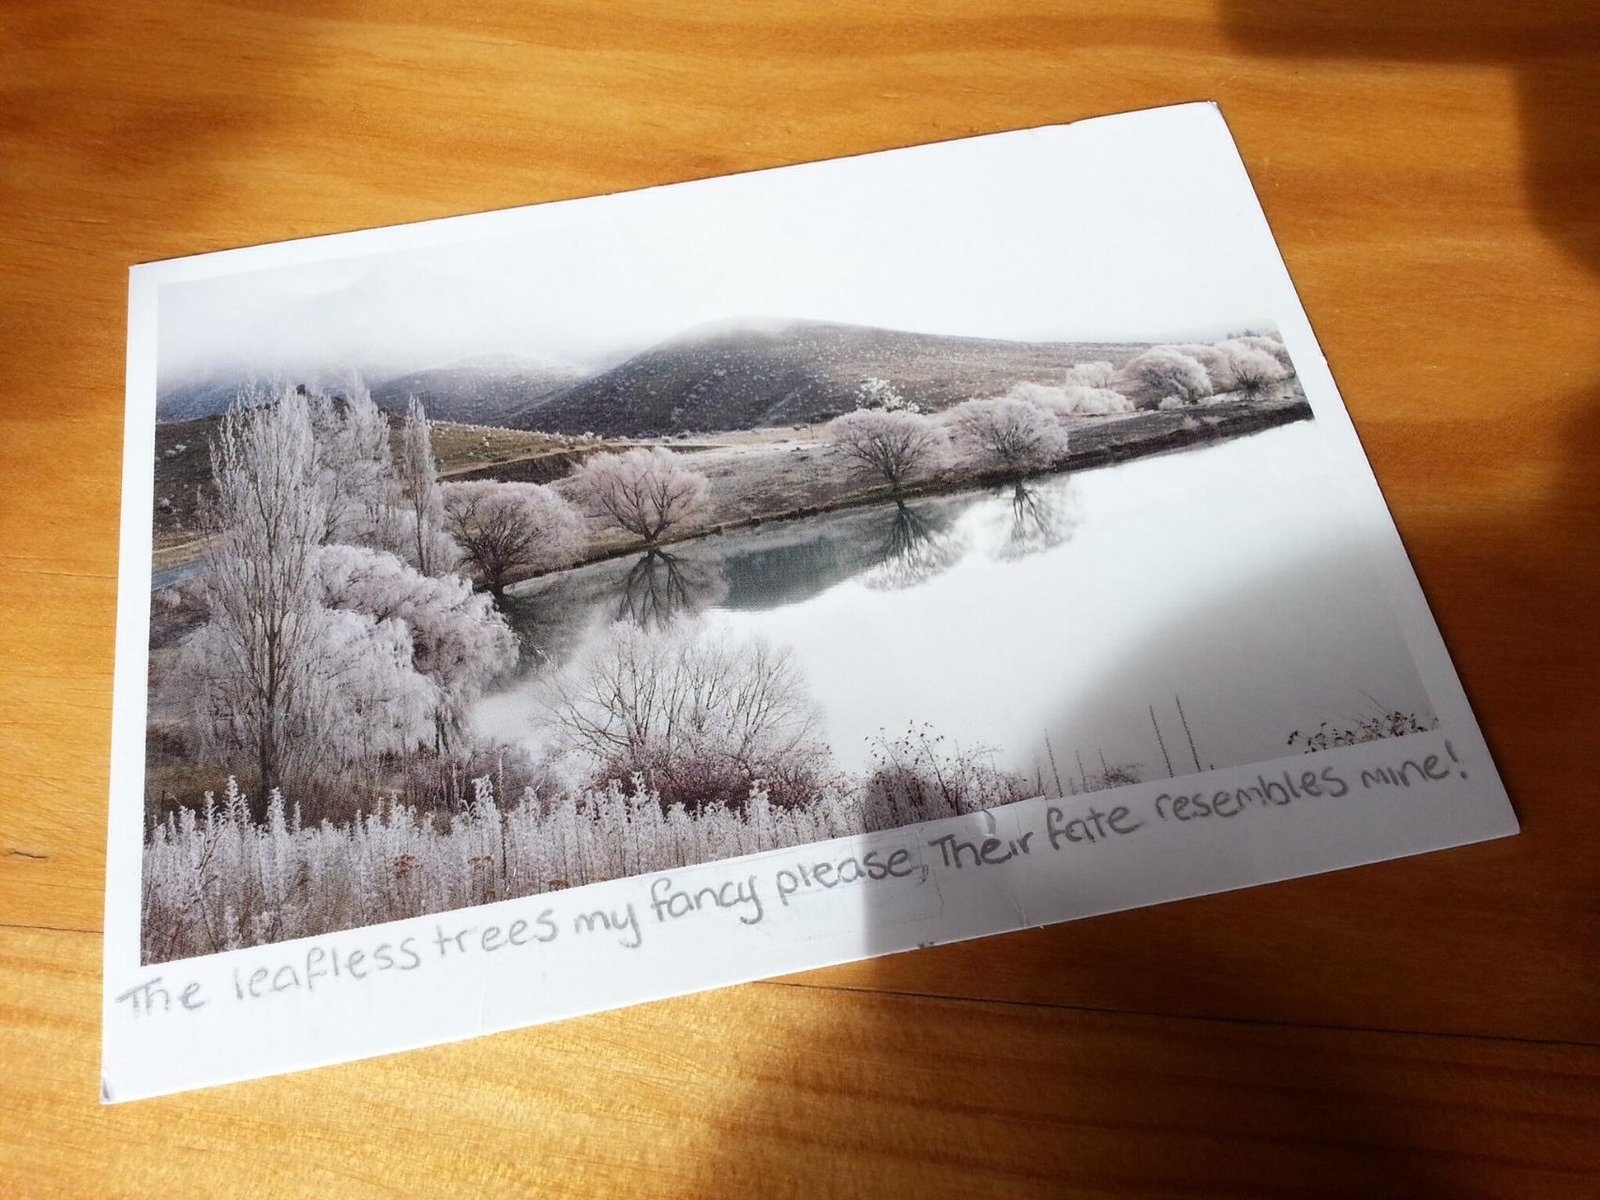 The leafless trees my fancy please, Their fate resembles mine!